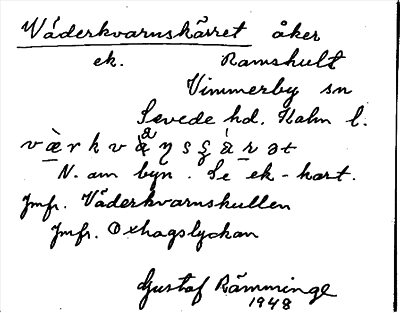 Väderkvarnskärret åker
ek. Ramshult
Vimmerby sn
Sevede hd. Kalm l.
N. om byn. Se ek-kart.
Jmfr. Väderkvarnskullen
Jmfr. Oxhagslyckan
Gustaf Rämminge
1948